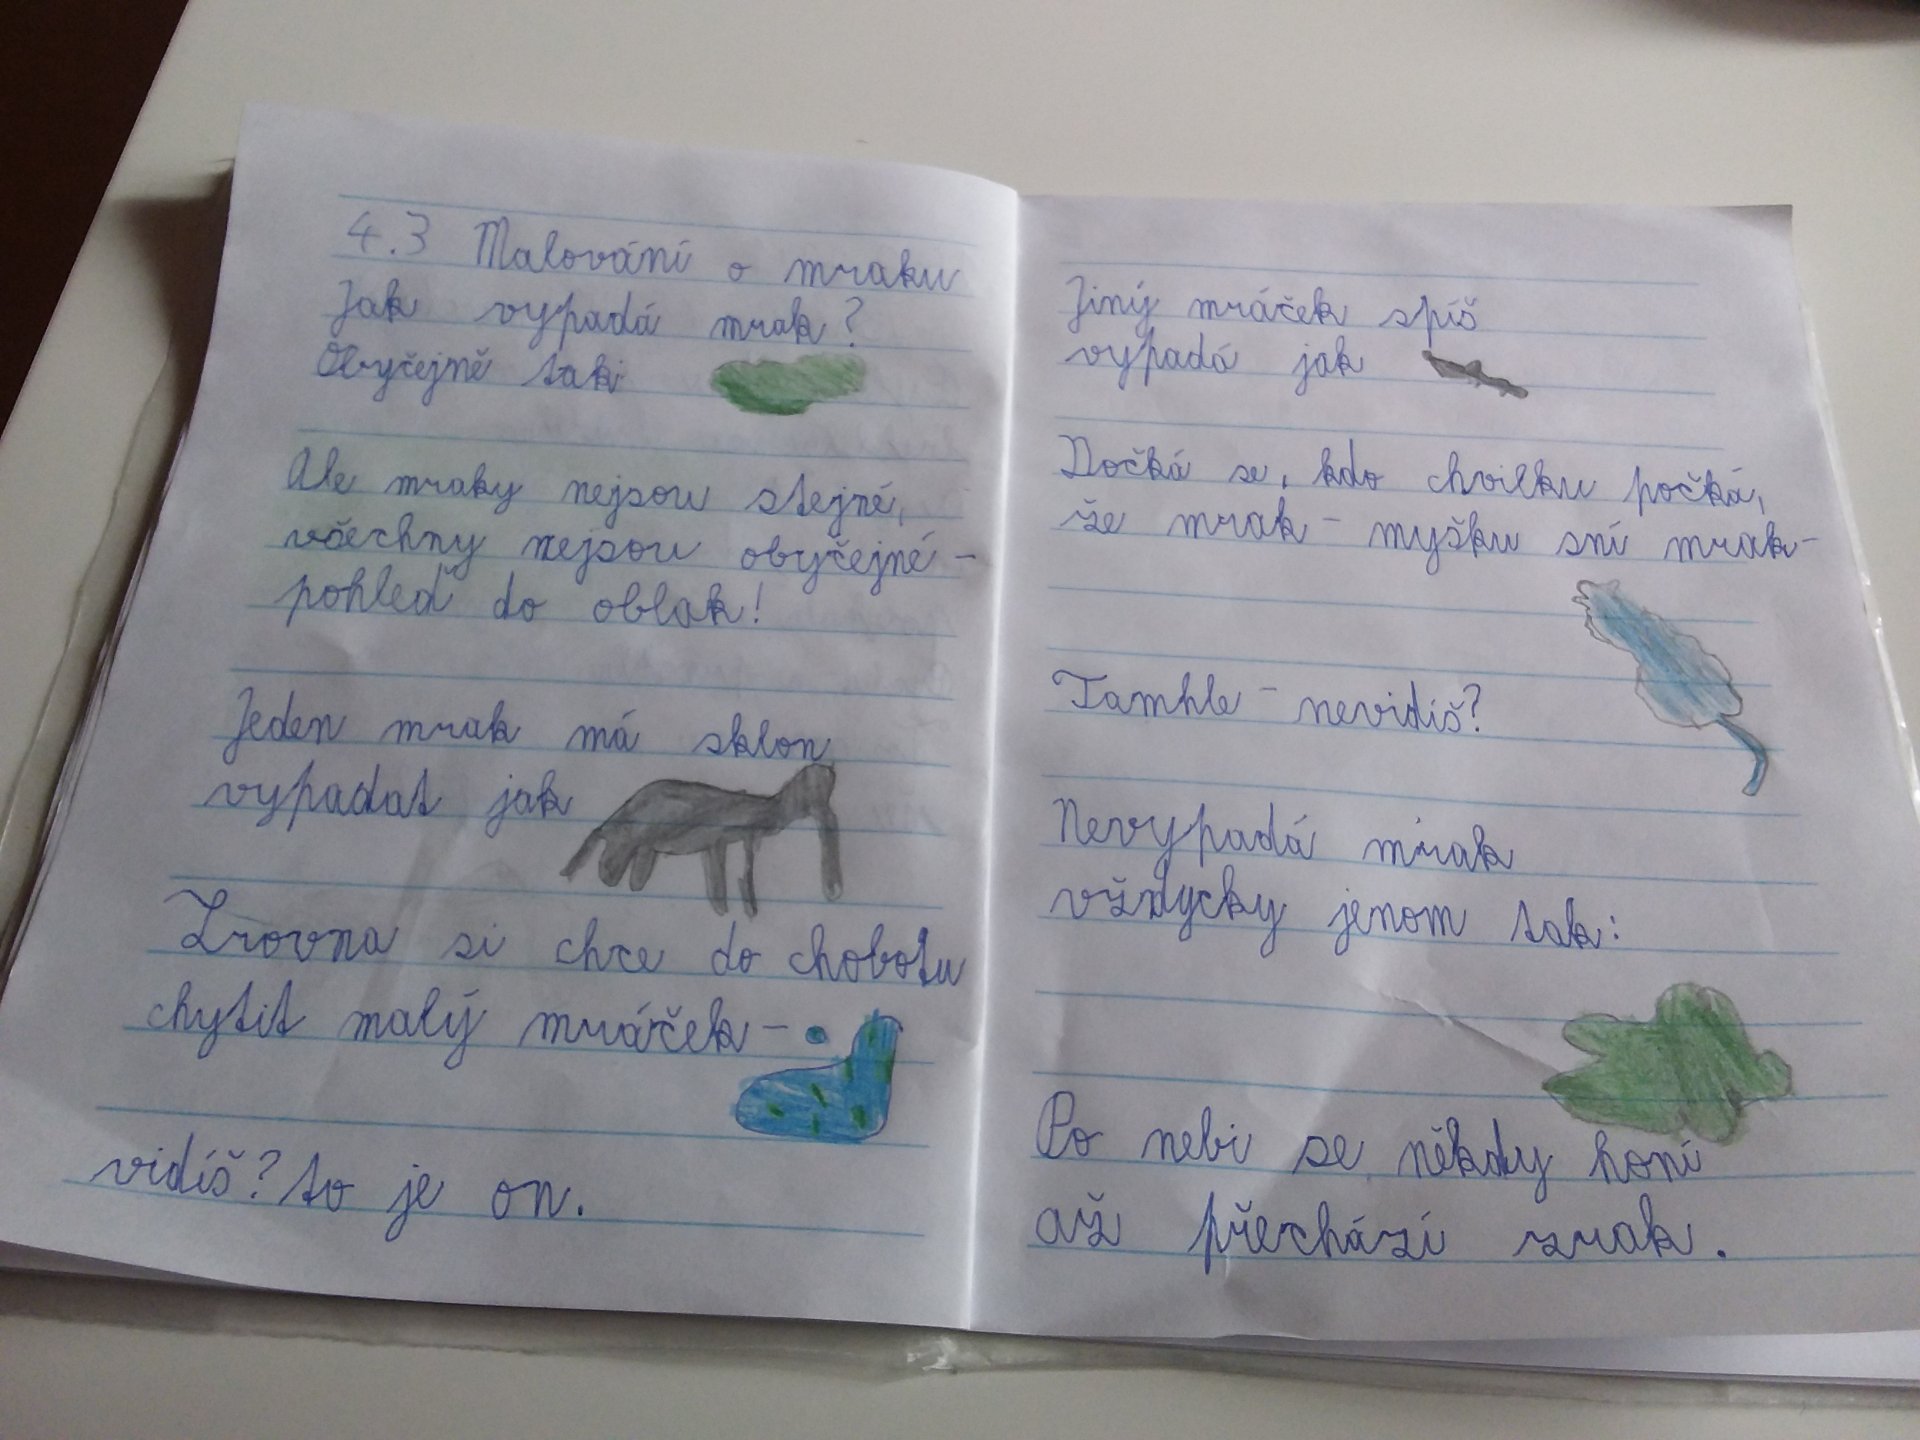 4.3 Malování o mraku
Jak vypadá mrak?
Obyčejně tak:
Ale mraky nejsou stejné,
všechny nejsou obyčejné -
pohleď do oblak!
Jeden mrak má sklon
vypadat jak
Zrovna si chce do chobotu
chytit malý mráček -
vidíš? to je on.
Jiný mráček spíš
vypadá jak
Dočká se, kdo chvilku počká,
že mrak - myšku sní mrak -
Tamhle - nevidíš?
Nevypadá mrak
vždycky jenom tak:
Po nebi se někdy honí
až přechází zrak.